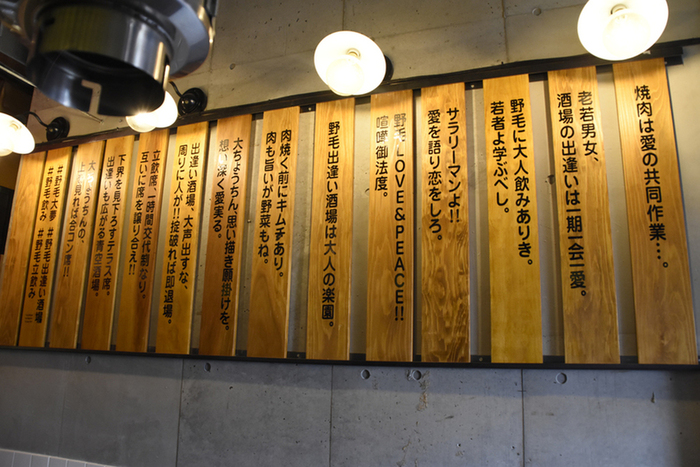 焼肉は愛の共同作業…。
老若男女、
酒場の出逢いは一期一会一愛。
野毛に大人飲みありき。
若者よ学ぶべし。
サラリーマンよ!!
愛を語り恋をしろ。
野毛LOVE&PEACE!!
喧嘩御法度。
野毛出逢い酒場は大人の楽園。
肉焼く前にキムチあり。
肉も旨いが野菜もね。
大ちょうちん、思い描き願掛けを。
想い深く愛実る。
出逢い酒場、大声出すな、
周りに人が!!掟破れば即退場。
立飲席、一時間交代制なり。
互いに席を譲り合え!!
下界を見下ろすテラス席。
出逢いも広がる青空酒場。
大ちょうちんの、
上で見れば合コン席!!
#野毛大夢 #野毛出逢い酒場
#野毛飲み #野毛立飲み